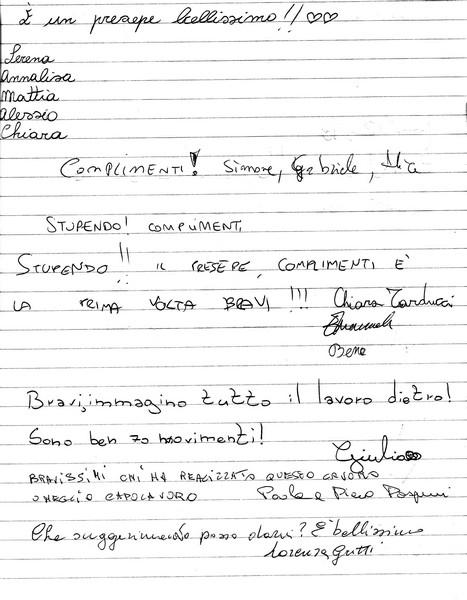 È un presepe bellissimo!! ♡♡
Serena
Annalisa
Mattia
Alessio
Chiara
COMPLIMENTI! Simone, Gabriele,
STUPENDO! COMPLIMENTI
STUPENDO!! IL PRESEPE, COMPLIMENTI È
LA PRIMA VOLTA BRAVI!!! Chiara Tarducci
Emanuela
Bene
Bravi, immagino tutto il lavoro dietro!
Sono ben 70 movimenti!
Giulia
BRAVISSIMI CHI HA REALIZZATO QUESTO LAVORO
O MEGLIO CAPOLAVORO Paola e Piero
Che suggerimento posso darvi? È bellissimo
Lorenza Gutti